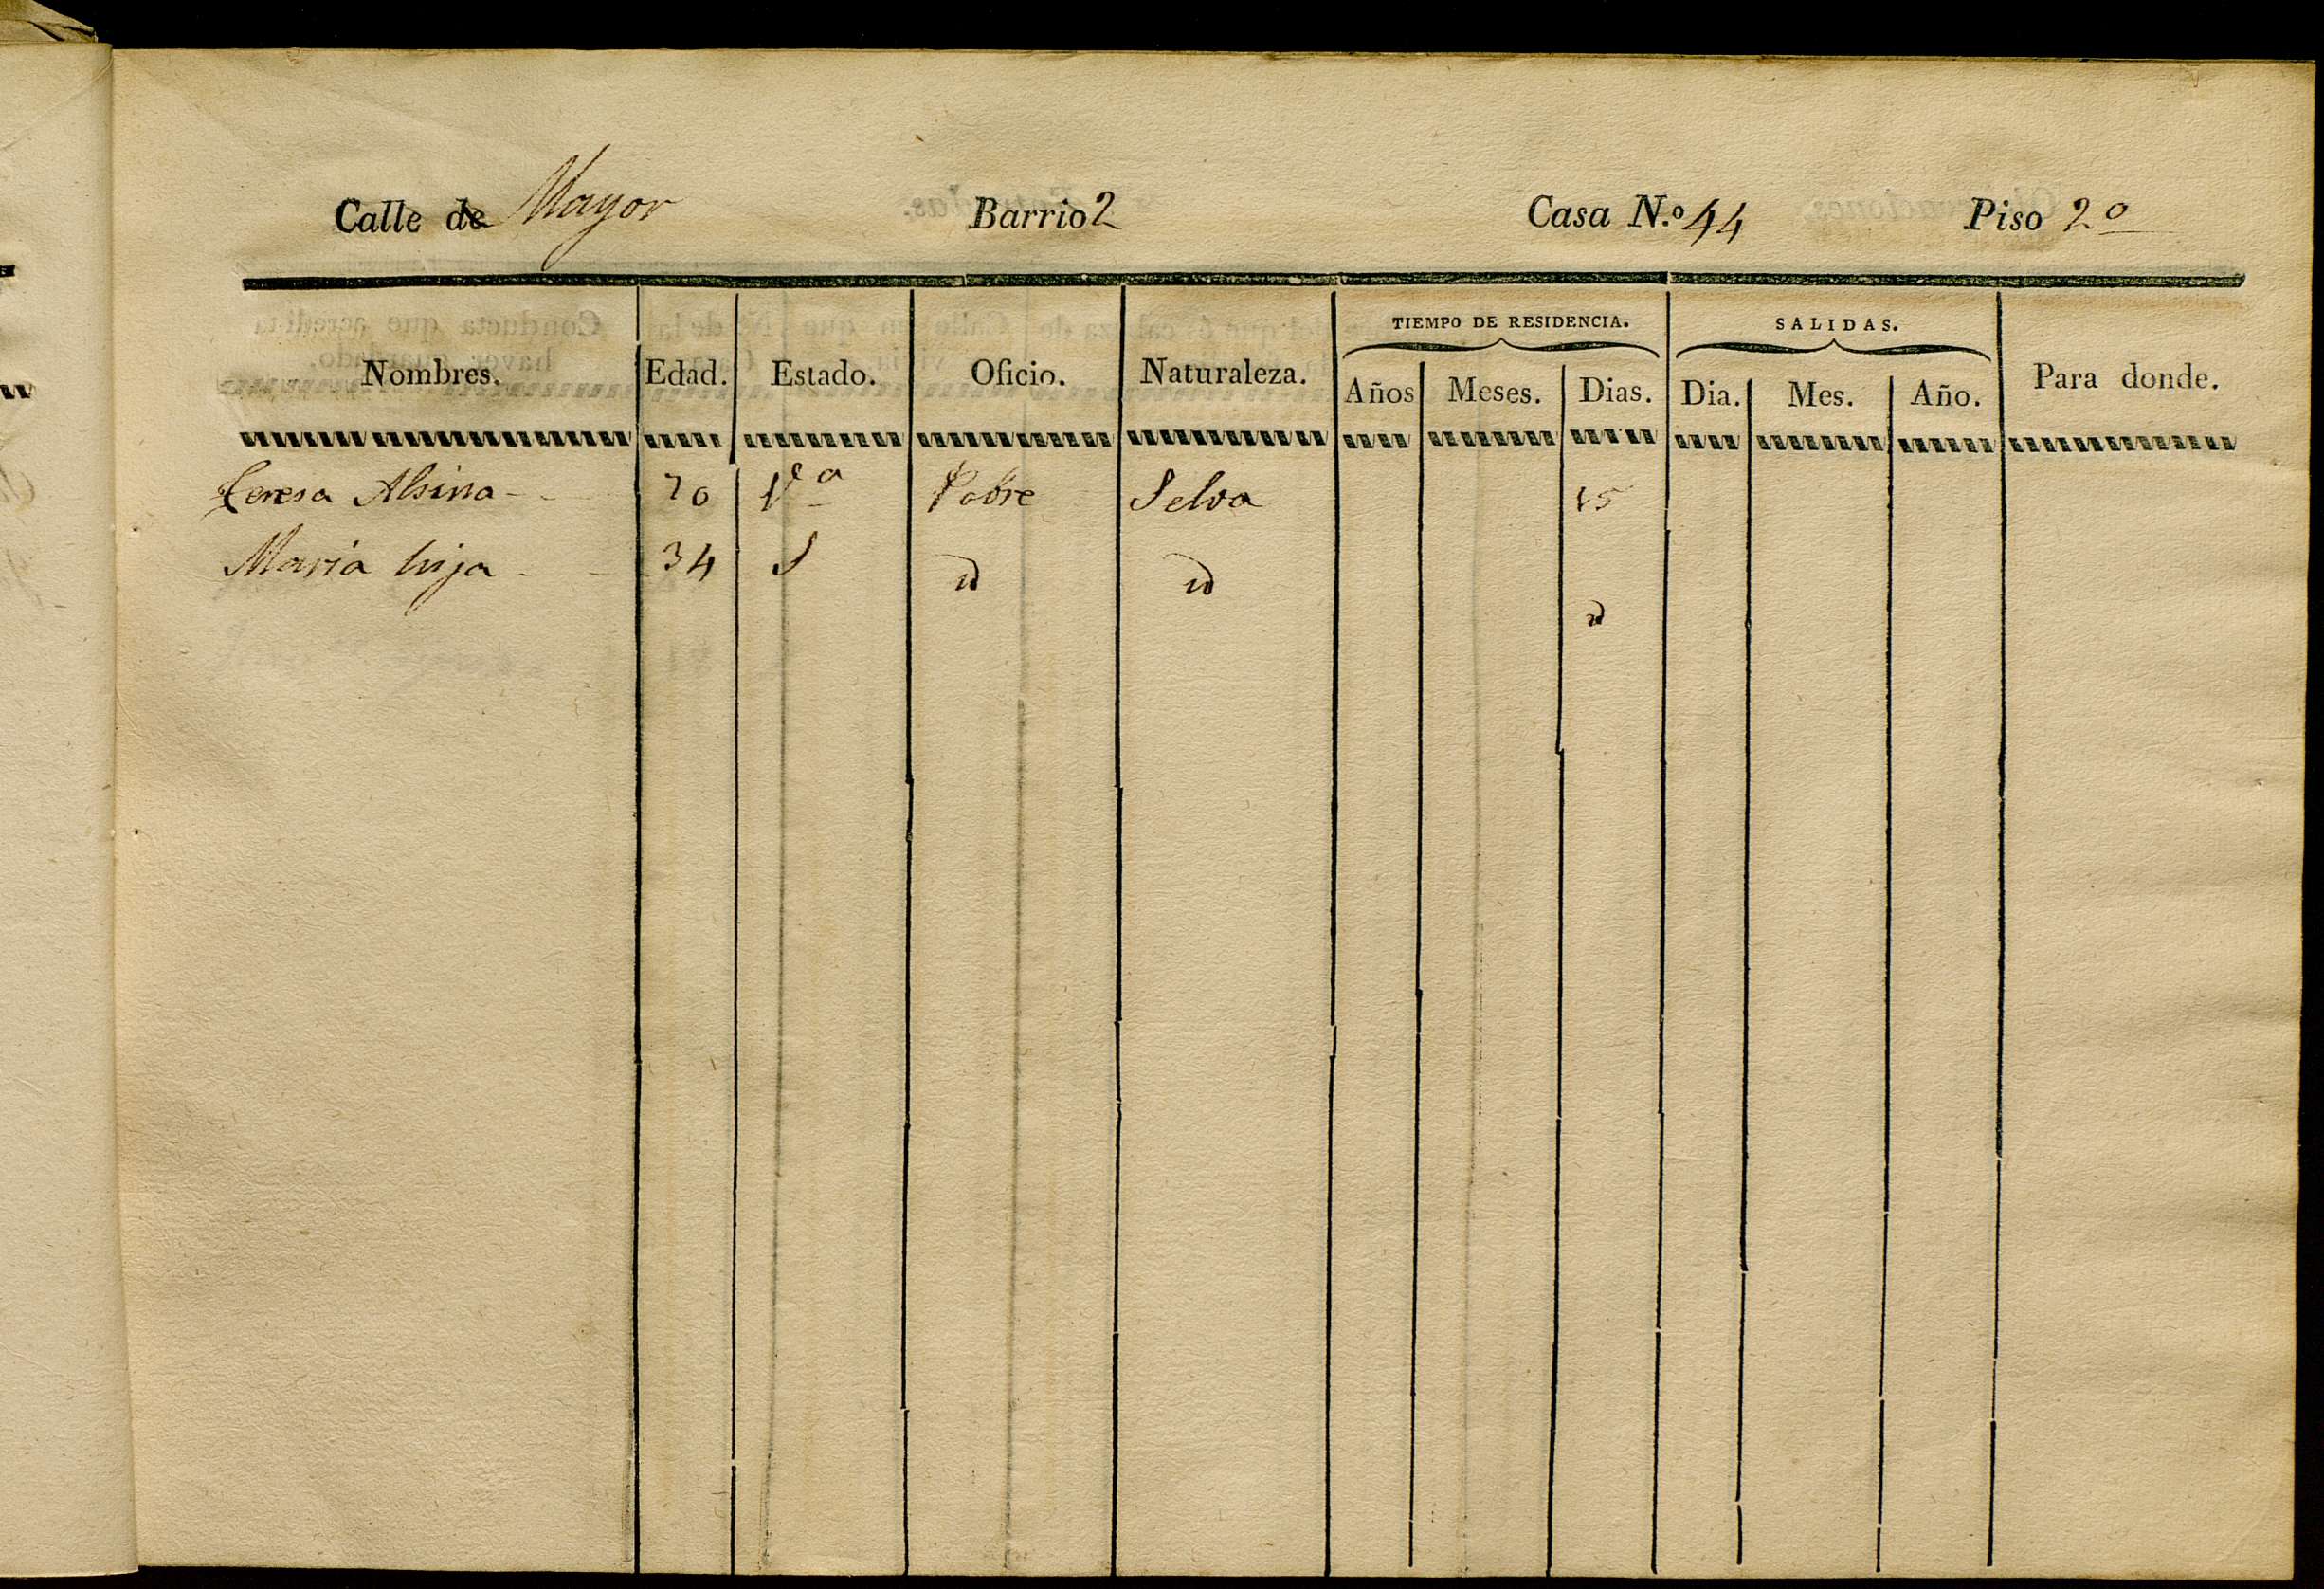 Calle de Mayor Barrio 2 Casa N.º 44 Piso 2º
TIEMPO DE RESIDENCIA. SALIDAS.
Nombres. Edad. Estado. Oficio. Naturaleza. Años Meses. Dias. Dia. Mes. Año. Para donde.
Teresa Alsina 70 Vª Pobre Selva 15
Maria hija 34 S id id
id